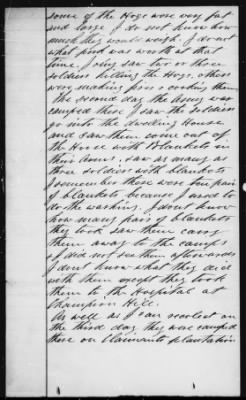 some of the Hogs were very fat
and large I do not know how
much they would weigh. I do not
what pork was worth at that
time. I only saw two or three
soldiers killing the Hogs, others
were making fires & cooking them
The second day the Army was
camped there I saw the soldiers
go into the dwelling House
and saw them come out of
the House with Blankets in
their arms. saw as many as
three soldiers with blankets
I remember there were ten pair
of blankets because I used to
do the washing, I don't know
how many pairs of blankets
they took saw them carry
them away to the camps
I did not see them afterwards
I don't know what they did
with them except they took
them to the Hospital at
Champion Hill.
As well as I can recollect on
the third day they were camped
there on Claimants plantation